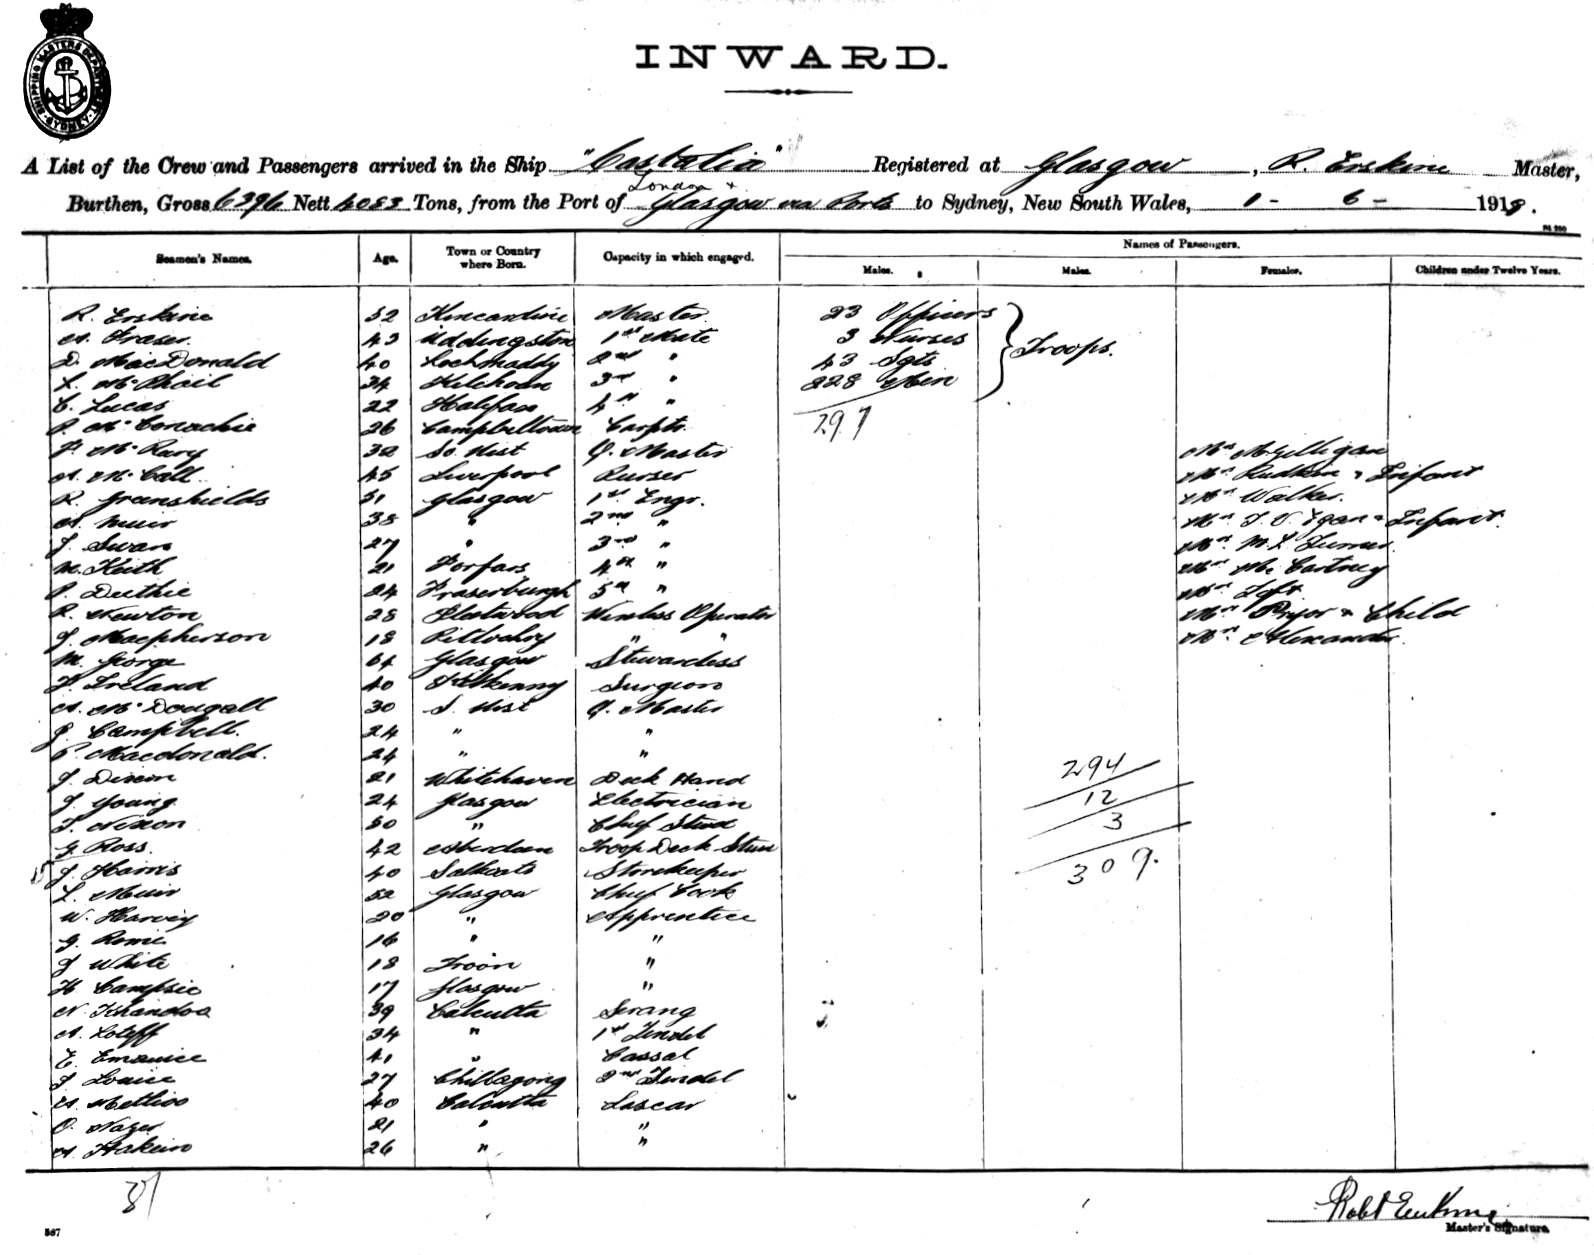 SHIPPING MASTERS DEPARTMENT SYDNEY
INWARD.
A List of the Crew and Passengers arrived in the Ship "Castalia" Registered at Glasgow, R. Erskine Master,
London &
Burthen, Gross 6396 Nett Tons, from the Port of Glasgow via Ports to Sydney, New South Wales, 1 - 6 - 1918.
Names of Passengers.
Seamen's Names. Age. Town or Country where Born. Capacity in which engaged. Males. Males. Females. Children under Twelve Years.
R. Erskine 52 Kincardine Master 23 Officers
A. Fraser 43 Uddingston 1st Mate 3 Nurses
D. MacDonald 40 Lochmaddy 2nd " 43 Sgts Troops.
L. McPhail 34 Kilchoan 3rd " 228 Men
C. Lucas 22 Halifax 4th "
P. McConachie 26 Campbeltown Carptr 297
J. McRary 32 So. Uist Q. Master Mrs McGilligan
A. McCall 45 Liverpool Purser Mrs Rudkin & Infant
R. Greenshields 51 Glasgow 1st Engr. Mrs Walker
A. Muir 38 " 2nd " Mrs J. V. Egan & Infant
J. Swan 27 " 3rd " Mrs M. L. Turner
M. Keith 21 Forfar 4th " Mrs McCartney
P. Duthie 24 Fraserburgh 5th " Mrs
R. Newton 28 Fleetwood Wireless Operator Mrs Pryor & Child
J. Macpherson 18 " " Mrs Alexander.
M. George 64 Glasgow Stewardess
F. Ireland 40 Kilkenny Surgeon
A. McDougall 30 S. Uist Q. Master
J. Campbell. 24 " "
P. Macdonald. 24 " "
J. Dixon 21 Whitehaven Deck Hand 294
J. Young 24 Glasgow Electrician 12
T. Nixon 50 " Chief Stwd 3
G. Ross. 42 Aberdeen Troop Deck Stwd
J. Harris 40 Saltcoats Storekeeper 309.
L. Muir 52 Glasgow Chief Cook
W. Harvey 20 " Apprentice
G. Romie 16 " "
J. White 18 Troon "
H. Campsie 17 Glasgow "
N. Khandoo 39 Calcutta Serang
A. Loteff 34 " 1st Tindel
E. 41 " Cassab
J. 27 Chittagong 2nd Tindel
40 Calcutta Lascar
O. Nazer 21 " "
A. Hakein 26 " "
Robt Erskine
Master's Signature.
567